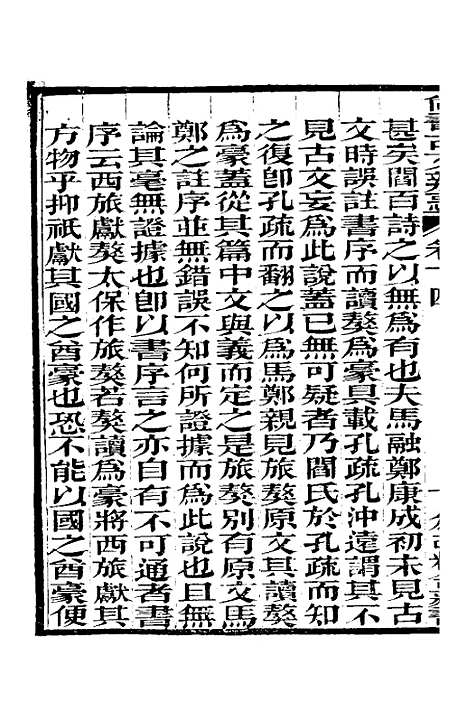 卷十四
甚矣閻百詩之以無為有也夫馬融鄭康成初未見古
文時誤註書序而讀獒為豪具載孔疏孔沖遠謂其不
見古文妄為此說蓋已無可疑者乃閻氏於孔疏而知
之復卽孔疏而翻之以為馬鄭親見旅獒原文其讀獒
為豪蓋從其篇中文與義而定之是旅獒別有原文馬
鄭之註序並無錯誤不知何所證據而為此說也且無
論其毫無證據也卽以書序言之亦自有不可通者書
序云西旅獻獒太保作旅獒若獒讀為豪將西旅獻其
方物乎抑祇獻其國之酋豪也恐不能以國之酋豪便